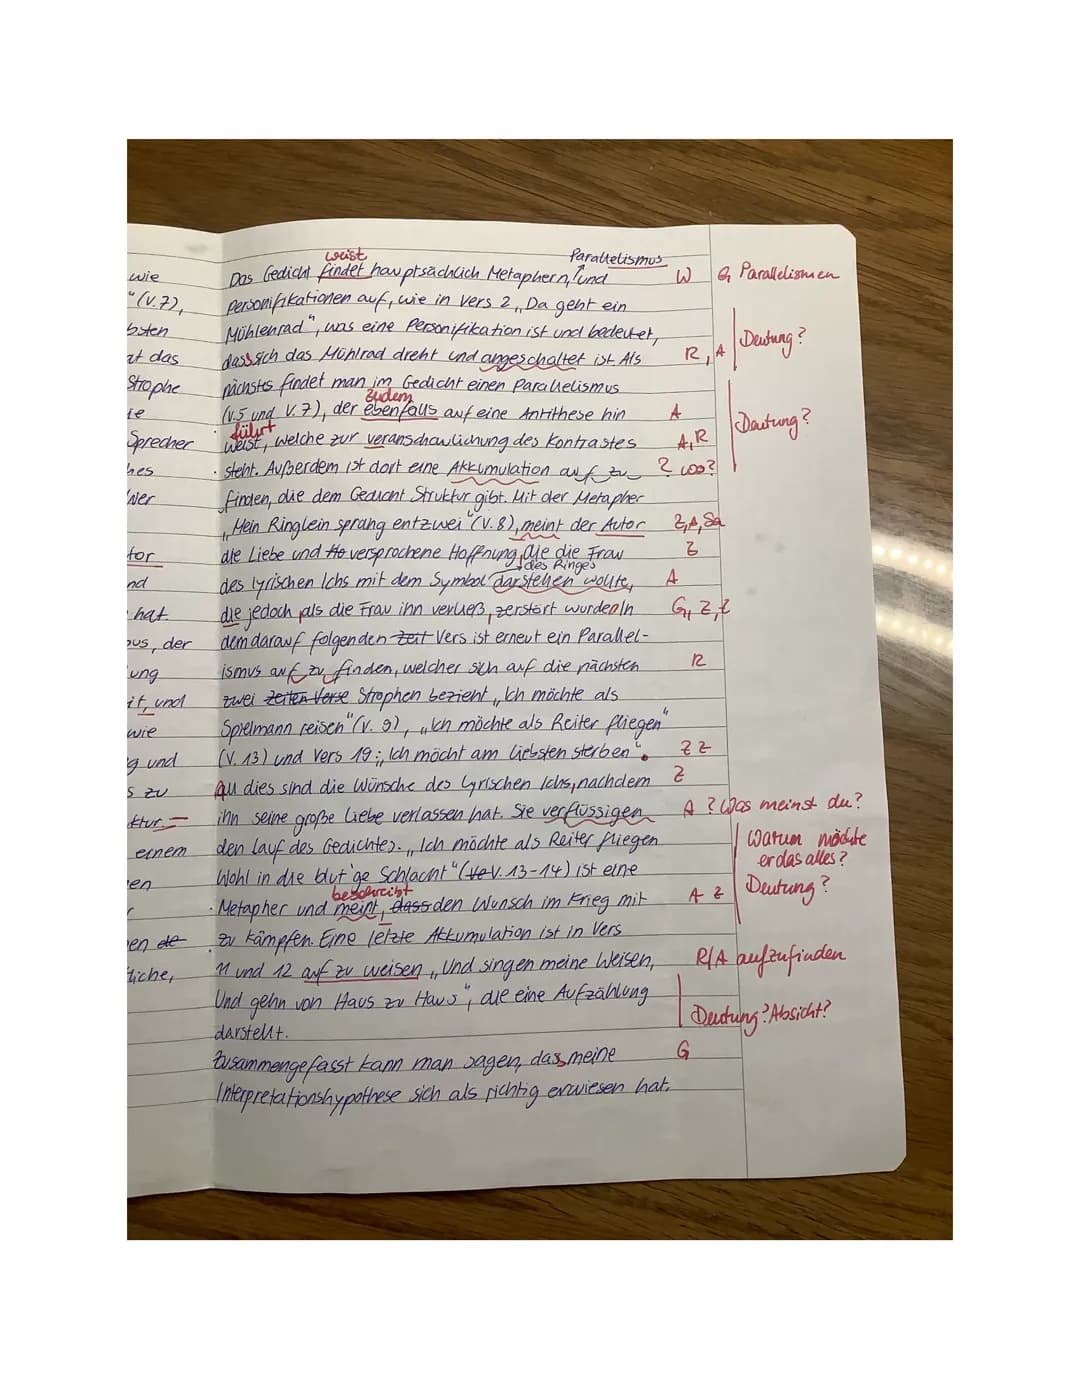 weist Parallelismus
wie Das Gedicht findet hauptsächlich Metaphern, und W G Parallelismen
"(V.7), Personifikationen auf, wie in Vers 2 „Da geht ein
bsten Mühlenrad", was eine Personifikation ist und bedeutet, Deutung?
at das dass sich das Mühlrad dreht und angeschaltet ist. Als R, A
Strophe nächstes findet man im Gedicht einen Parallelismus
zudem
ie (V.5 und V.7), der ebenfalls auf eine Antithese hin A Deutung?
führt
Sprecher weist, welche zur veranschaulichung des Kontrastes A, R
hes steht. Außerdem ist dort eine Akkumulation auf zu ? wo?
finden, die dem Gedicht Struktur gibt. Mit der Metapher
„Mein Ringlein sprang entzwei" (V.8), meint der Autor Z, A,
tor die Liebe und versprochene Hoffnung, die die Frau Z
des Ringes
nd des lyrischen Ichs mit dem Symbol darstehen wollte, A
hat. die jedoch, als die Frau ihn verließ, zerstört wurden In G, Z, Z
us, der dem darauf folgenden Zeit Vers ist erneut ein Parallel-
ung ismus auf zu finden, welcher sich auf die nächsten R
it, und zwei Zeilen Verse Strophen bezieht „Ich möchte als
wie Spielmann reisen" (V. 9), „Ich möchte als Reiter fliegen"
g und (V. 13) und Vers 19: „Ich möcht am liebsten sterben". Z Z
s zu All dies sind die Wünsche des Lyrischen Ichs, nachdem Z
ktur. ihn seine große Liebe verlassen hat. Sie verflüssigen A ? Was meinst du?
einem den Lauf des Gedichtes. „Ich möchte als Reiter fliegen Warum möchte
er das alles?
en Wohl in die blut'ge Schlacht" (V. 13-14) ist eine Deutung?
beschreibt
Metapher und meint, dass den Wunsch im Krieg mit A Z
en de zu kämpfen. Eine letzte Akkumulation ist in Vers
liche, 11 und 12 auf zu weisen „Und singen meine Weisen, R/A aufzufinden
Und gehn von Haus zu Haus", die eine Aufzählung Deutung? Absicht?
darstellt.
Zusammengefasst kann man sagen, das meine G
Interpretationshypothese sich als richtig erwiesen hat.